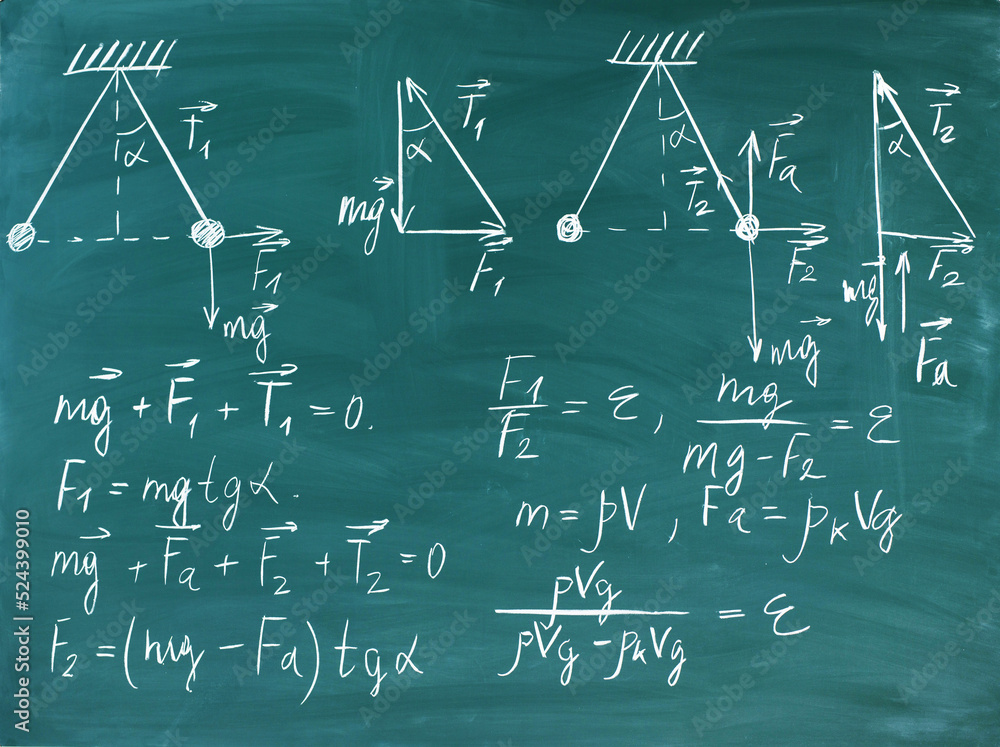 α
T⃗₁
F⃗₁
mg⃗
α
T⃗₁
mg⃗
F⃗₁
α
F⃗a
T⃗₂
F⃗₂
mg⃗
α
T⃗₂
F⃗₂
mg⃗
F⃗a
mg⃗ + F⃗₁ + T⃗₁ = 0.
F₁ = mg tg α.
mg⃗ + F̅a + F⃗₂ + T⃗₂ = 0
F₂ = (mg − Fa) tg α
F₁/F₂ = ε, mg/(mg − F₂) = ε
m = ρV, Fa = ρₖVg
ρVg/(ρVg − ρₖVg) = ε
Adobe Stock | #524399010
Adobe Stock